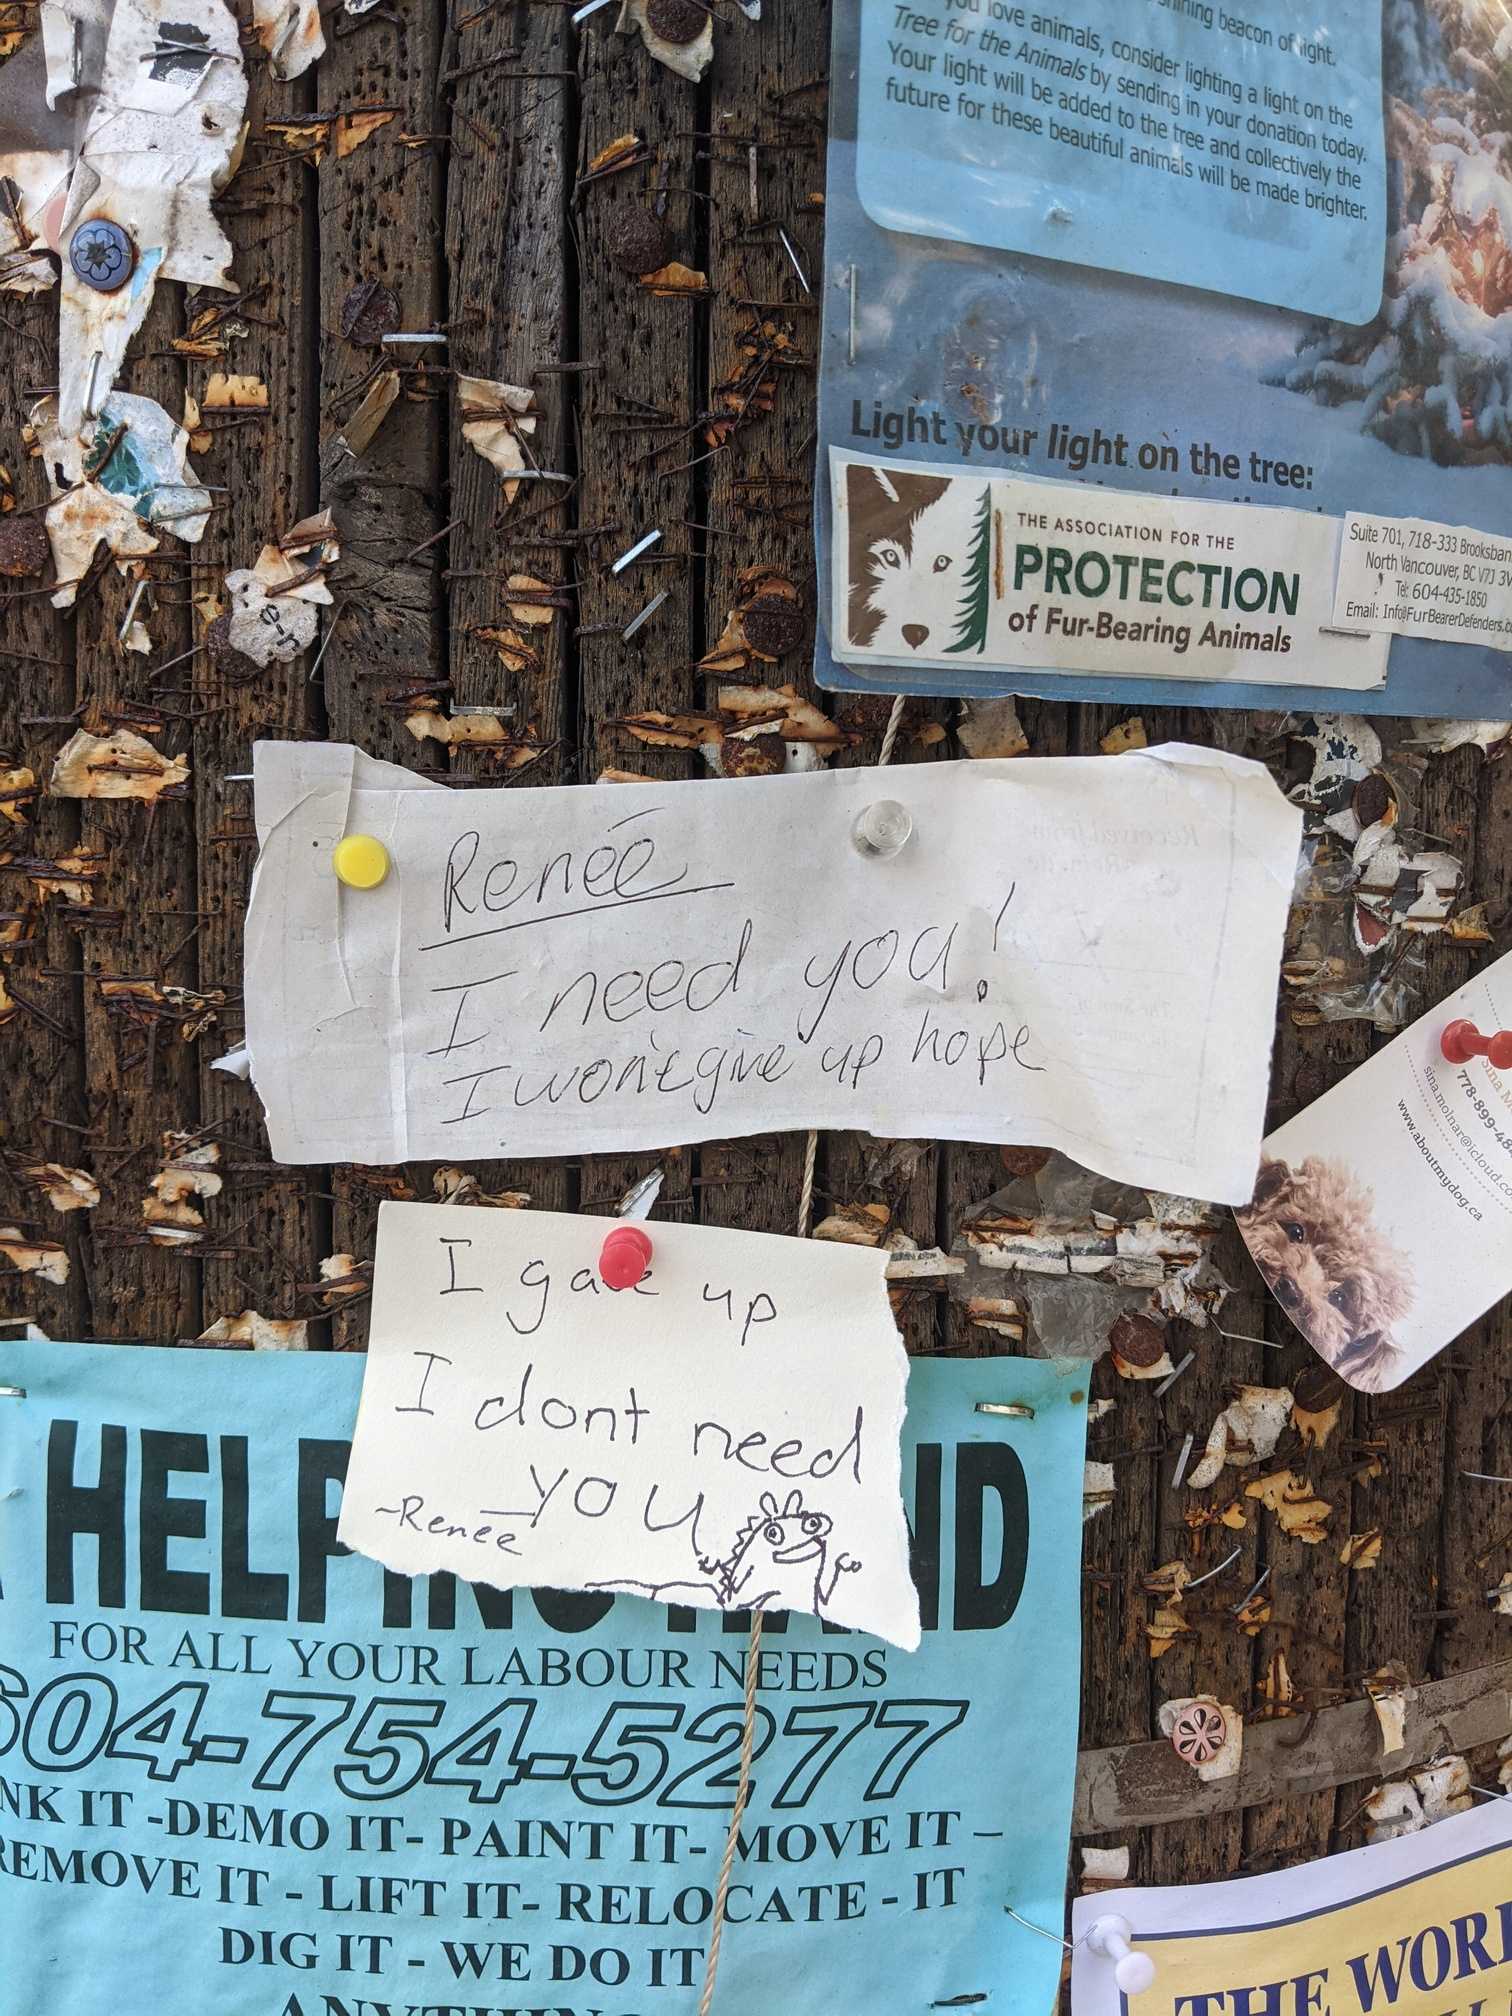 shining beacon of light.
you love animals, consider lighting a light on the
Tree for the Animals by sending in your donation today.
Your light will be added to the tree and collectively the
future for these beautiful animals will be made brighter.
Light your light on the tree:
THE ASSOCIATION FOR THE
PROTECTION
of Fur-Bearing Animals
Suite 701, 718-333 Brooksban
North Vancouver, BC V7J 3V
Tel: 604-435-1850
Email: Info@FurBearerDefenders.c
e-n
Renée
I need you!
I won't give up hope
778-899-48
sina.molnar@icloud.co
www.aboutmydog.ca
I gave up
I dont need
you
~Renee
HELPING HAND
FOR ALL YOUR LABOUR NEEDS
604-754-5277
NK IT -DEMO IT- PAINT IT- MOVE IT –
REMOVE IT - LIFT IT- RELOCATE - IT
DIG IT - WE DO IT
ANYTHING
THE WORL